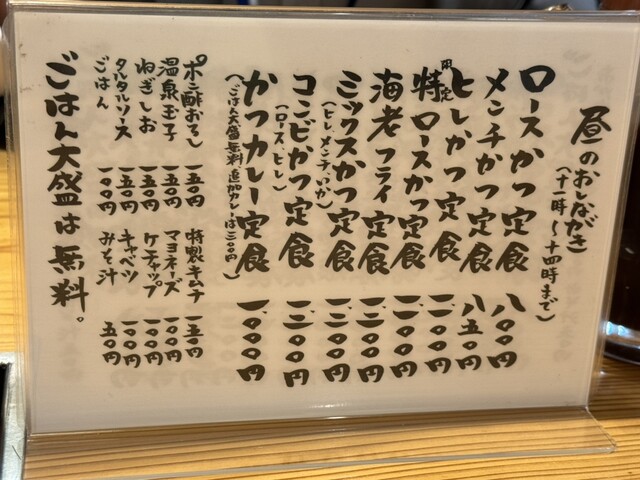 昼のおしながき
(十一時〜十四時まで)
ロースかつ定食 八〇〇円
メンチかつ定食 八五〇円
ヒレかつ定食
限定 特ロースかつ定食
海老フライ定食
ミックスかつ定食
(ヒレ、メンチ、いか)
コンビかつ定食
(ロース、ヒレ)
かつカレー定食 一、〇〇〇円
(ごはん大盛無料 追加カレーは二〇〇円)
ポン酢おろし 一五〇円 特製キムチ 一五〇円
温泉玉子 一五〇円 マヨネーズ 一〇〇円
ねぎしお 一五〇円 ケチャップ 一〇〇円
タルタルソース 一五〇円 キャベツ 一〇〇円
ごはん 一〇〇円 みそ汁 五〇円
ごはん大盛は無料。